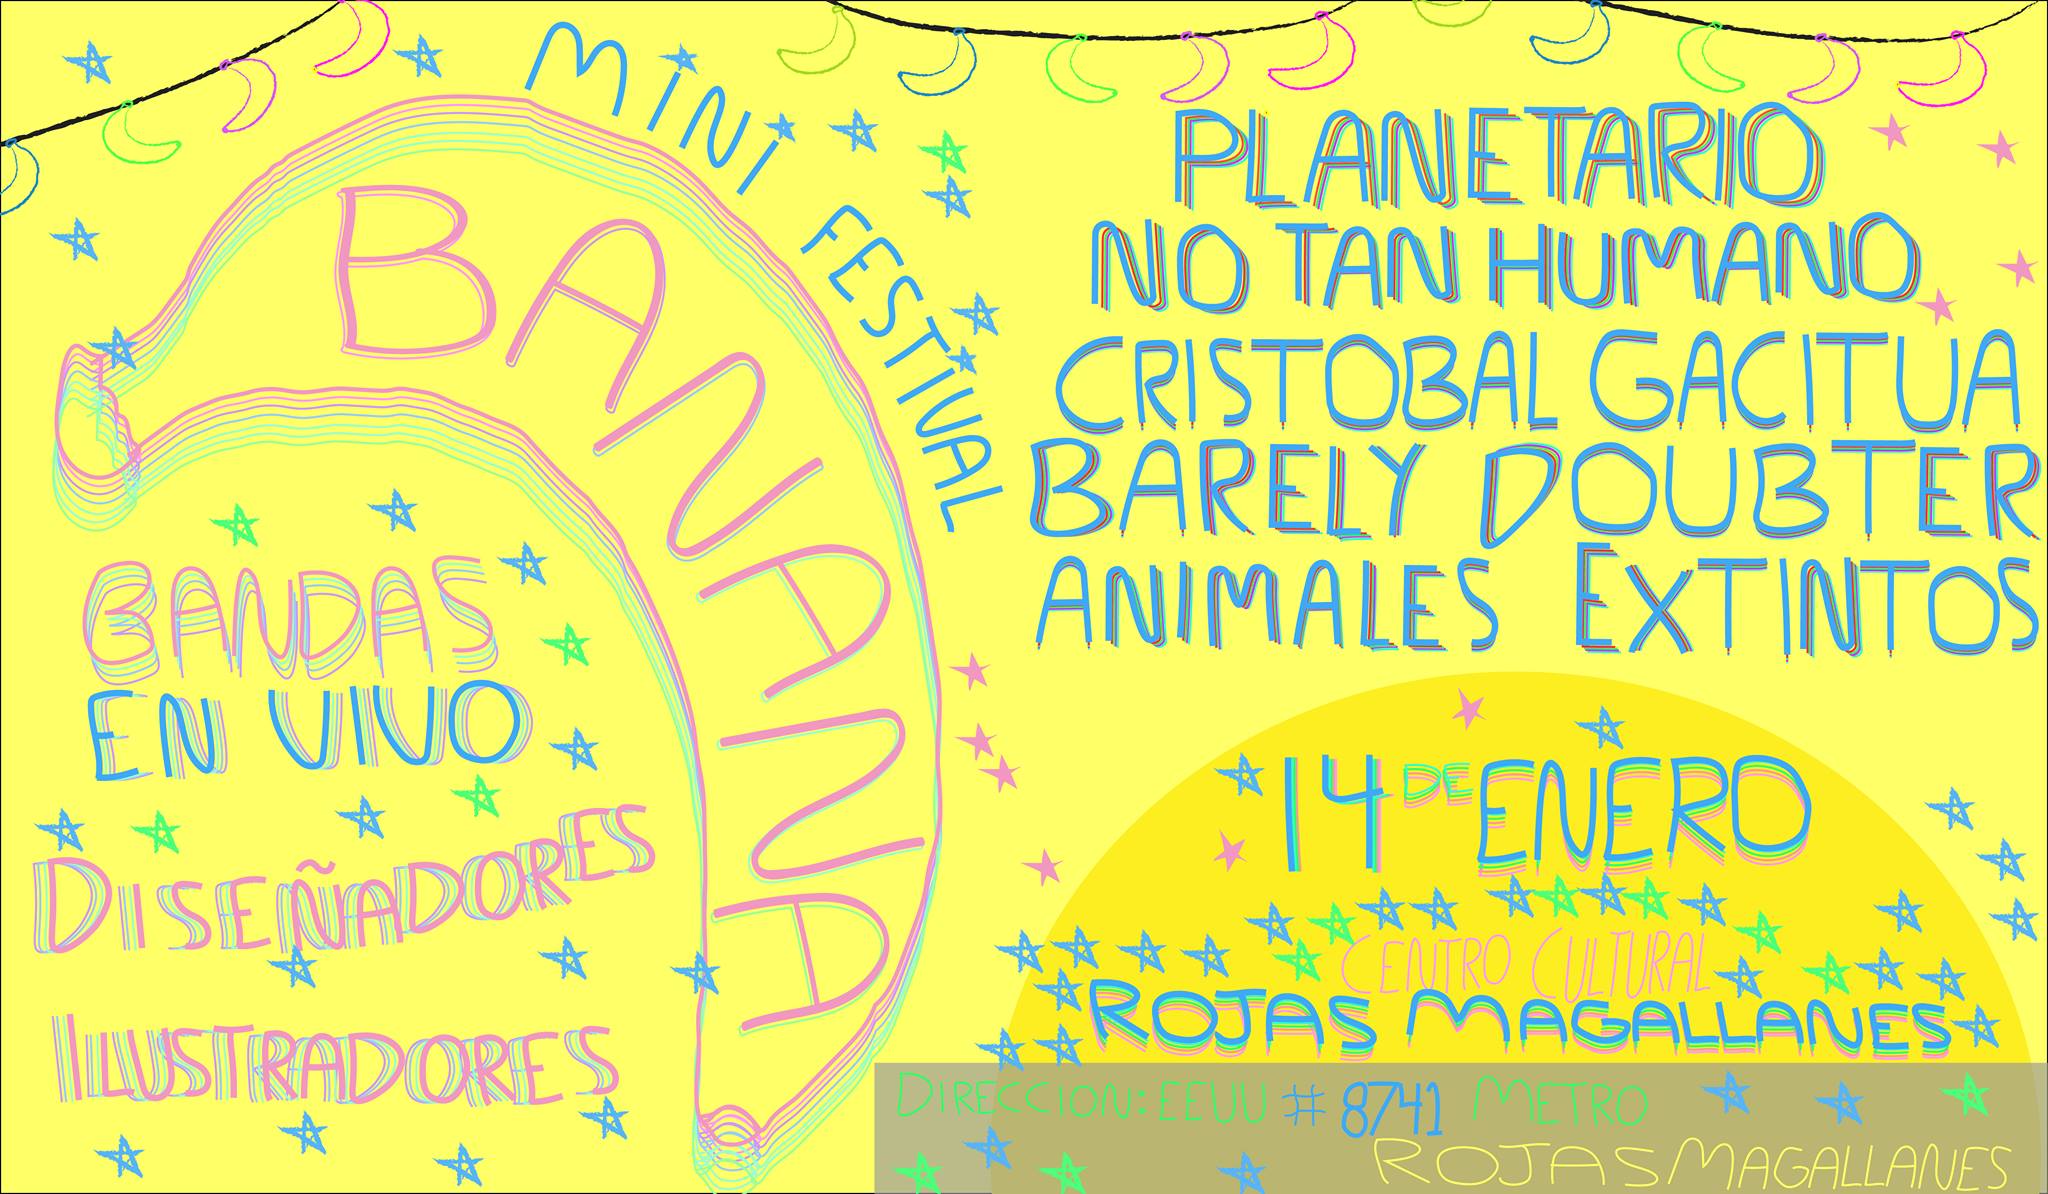 MINI FESTIVAL
BANANA
BANDAS
EN VIVO
DISEÑADORES
ILUSTRADORES
PLANETARIO
NO TAN HUMANO
CRISTOBAL GACITUA
BARELY DOUBTER
ANIMALES EXTINTOS
14 DE ENERO
CENTRO CULTURAL
ROJAS MAGALLANES
DIRECCION: EEUU # 8741 METRO
ROJAS MAGALLANES